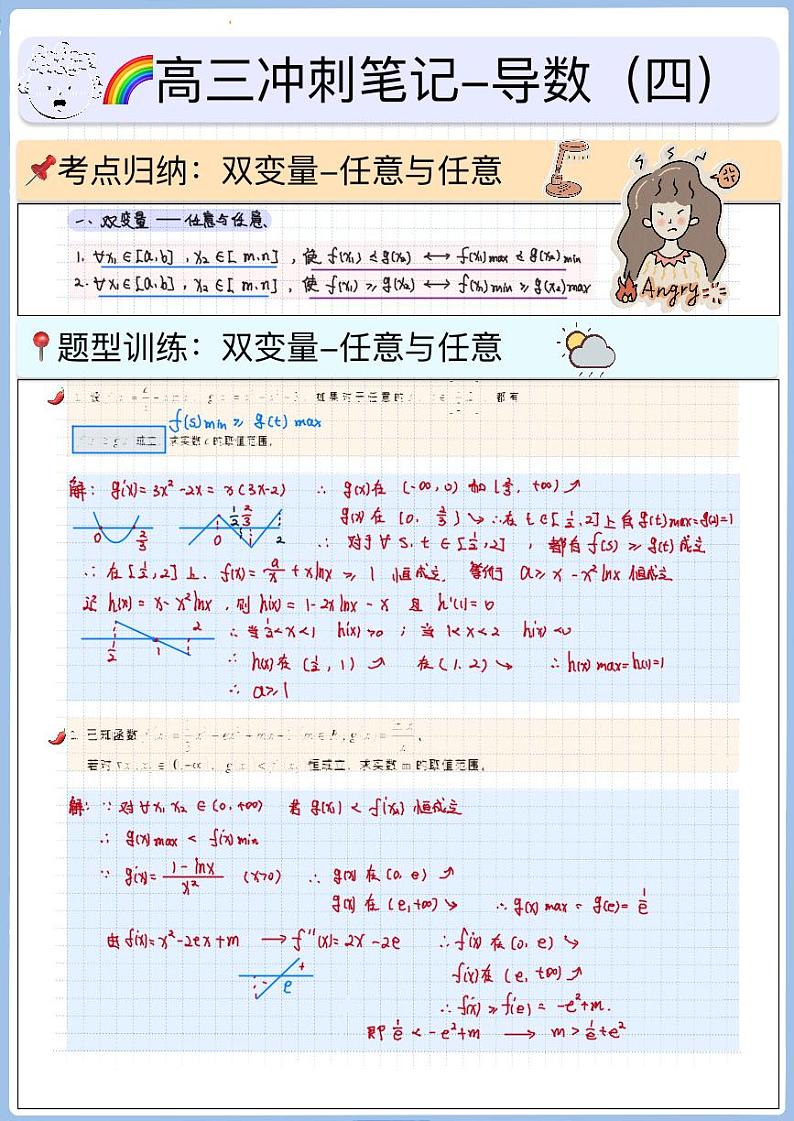 高三冲刺笔记–导数（四）
考点归纳：双变量–任意与任意
一、双变量 —— 任意与任意、
1. ∀x₁∈[a,b]，x₂∈[m,n]，使 f(x₁)≤g(x₂) ⟷ f(x₁)max≤g(x₂)min
2. ∀x₁∈[a,b]，x₂∈[m,n]，使 f(x₁)≥g(x₂) ⟷ f(x₁)min≥g(x₂)max
Angry
题型训练：双变量–任意与任意
设 如果对于任意的 都有
f(s)min ≥ g(t)max
成立，求实数 的取值范围。
解：g'(x)=3x²-2x=x(3x-2) ∴ g(x)在 (-∞,0)和[⅔,+∞)↗
0 2/3 0 1/2 2/3 2 g(x)在 [0,⅔]↘ ∴在 t∈[½,2]上有g(t)max=g(2)=1
∴ 对于∀ s,t∈[½,2]，都有f(s)≥g(t)成立
∴ 在[½,2]上，f(x)=a/x+xlnx≥1 恒成立，等价于 a≥x-x²lnx 恒成立
记 h(x)=x-x²lnx，则h'(x)=1-2xlnx-x 且 h'(1)=0
1/2 1 2 ∴ 当½<x<1 h'(x)>0；当1<x<2 h'(x)<0
∴ h(x)在(½,1)↗ 在(1,2)↘ ∴h(x)max=h(1)=1
∴ a≥1
2. 已知函数
若对 恒成立，求实数 m 的取值范围。
解：∵ 对∀x₁x₂∈(0,+∞) 若 g(x₁)<f'(x₂)恒成立
∴ g(x)max < f'(x)min
∵ g'(x)=(1-lnx)/x² (x>0) ∴ g(x)在(0,e)↗
g(x)在(e,+∞)↘ ∴g(x)max=g(e)=1/e
由f'(x)=x²-2ex+m ⟶ f''(x)=2x-2e ∴f'(x)在(0,e)↘
- + e f'(x)在(e,+∞)↗
∴f'(x)≥f'(e)=-e²+m.
即 1/e<-e²+m ⟶ m>1/e+e²